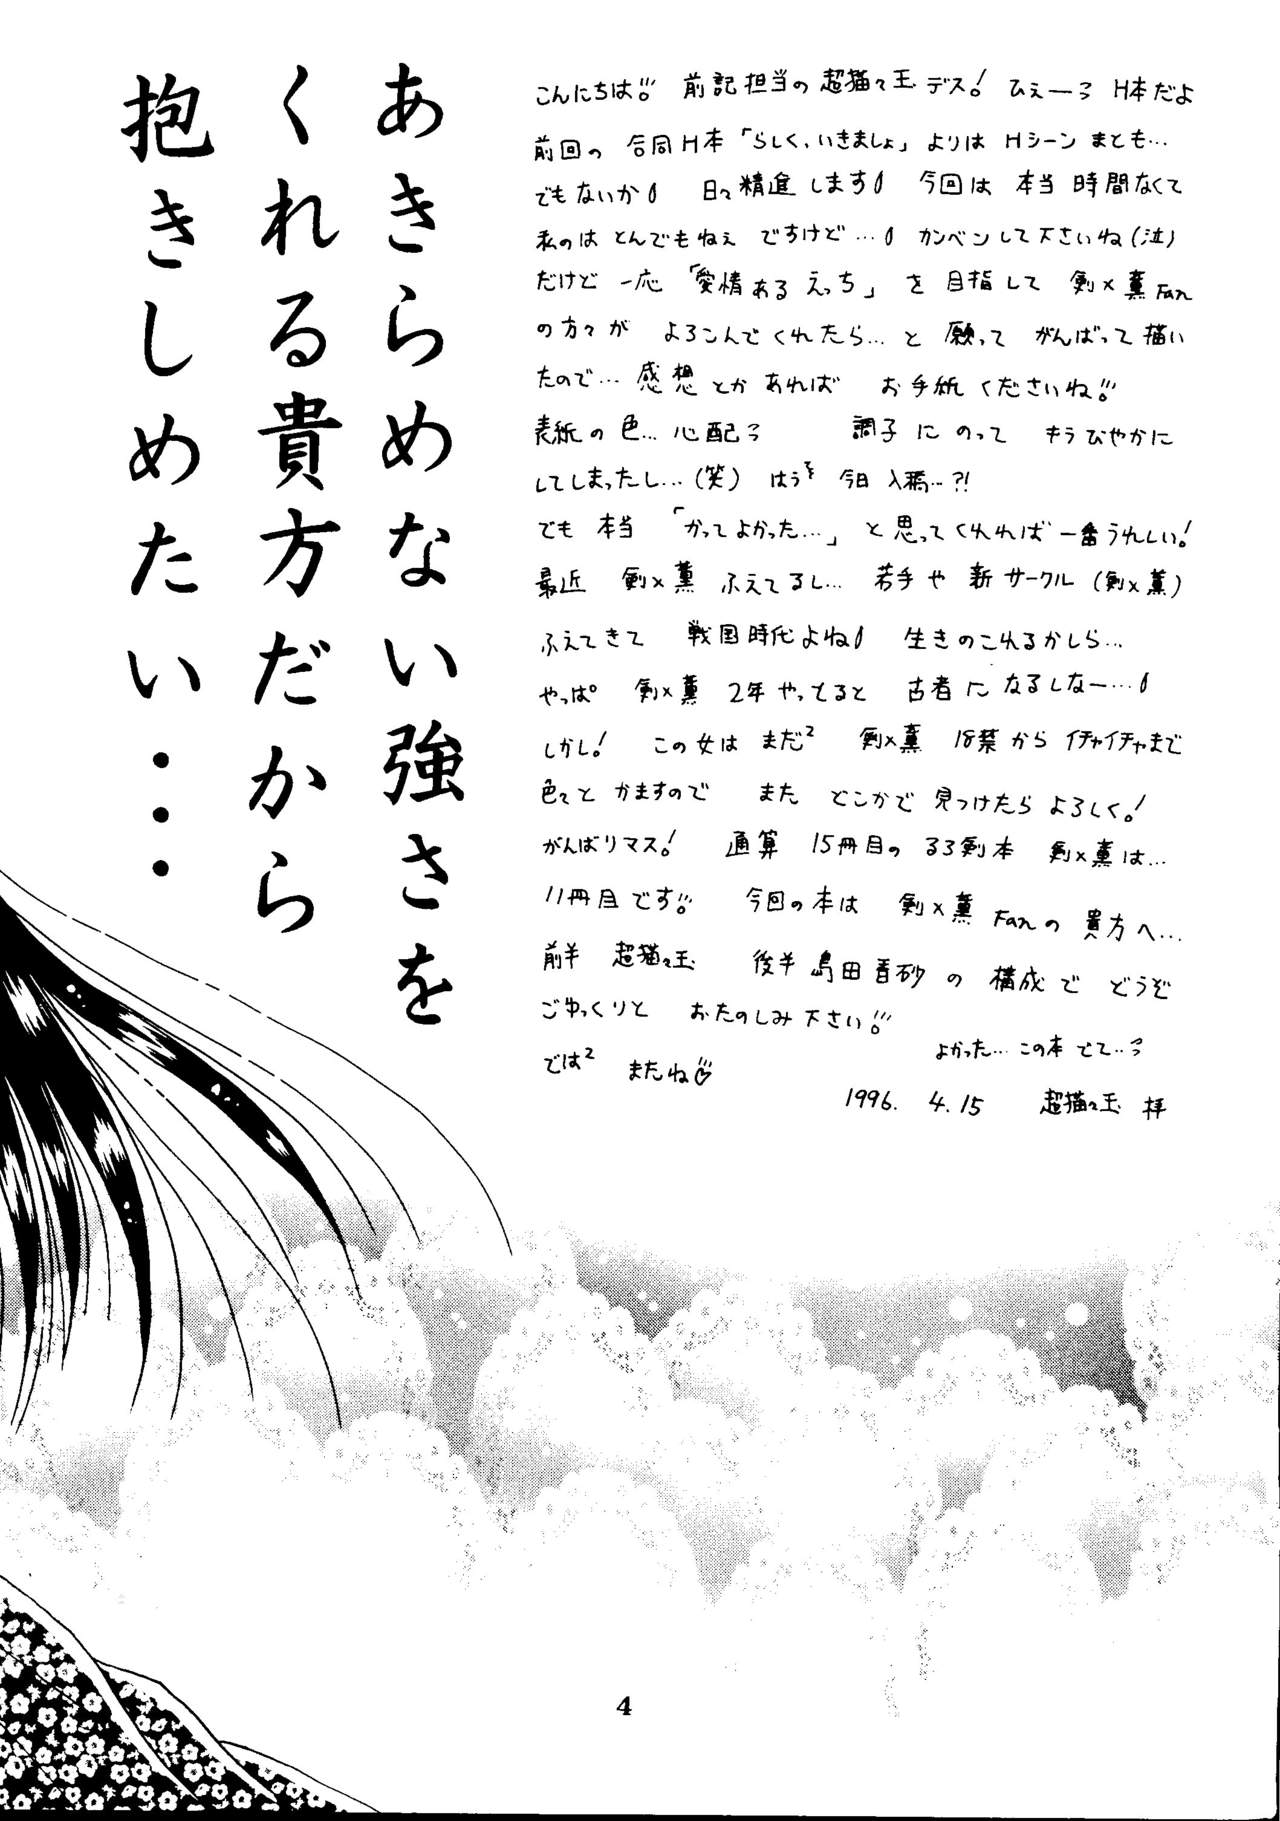 あきらめない強さを
くれる貴方だから
抱きしめたい・・・
こんにちは!! 前記担当の超猫々玉デス! ひえーっ H本だよ
前回の 合同H本「らしく、いきましょ」よりは Hシーン まとも…
でもないか 日々精進します 今回は 本当 時間なくて
私のは とんでもねぇ ですけど… カンベンして下さいね(泣)
だけど 一応 「愛情ある えっち」を 目指して 剣×薫 Fan
の方々が よろこんでくれたら…と 願って がんばって描い
たので… 感想とかあれば お手紙くださいね!!
表紙の色… 心配っ 調子にのって きらびやかに
してしまったし…(笑) はうぅ 今日 入稿…?!
でも 本当 「かってよかった…」と思ってくれれば 一番うれしい!
最近 剣×薫 ふえてるし… 若手や 新サークル (剣×薫)
ふえてきて 戦国時代よね 生きのこれるかしら…
やっぱ 剣×薫 2年やってると 古者に なるしなー…
しかし! この女は まだ2 剣×薫 18禁から イチャイチャまで
色々と かますので また どこかで 見つけたら よろしく!
がんばりマス! 通算 15冊目の るろ剣本 剣×薫は…
11冊目です!! 今回の本は 剣×薫 Fanの 貴方へ…
前半 超猫々玉 後半 島田吾砂の 構成で どうぞ
ごゆっくりと おたのしみ下さい!!
では2 またね♡ よかった… この本 でて…っ
1996. 4.15 超猫々玉 拝
4